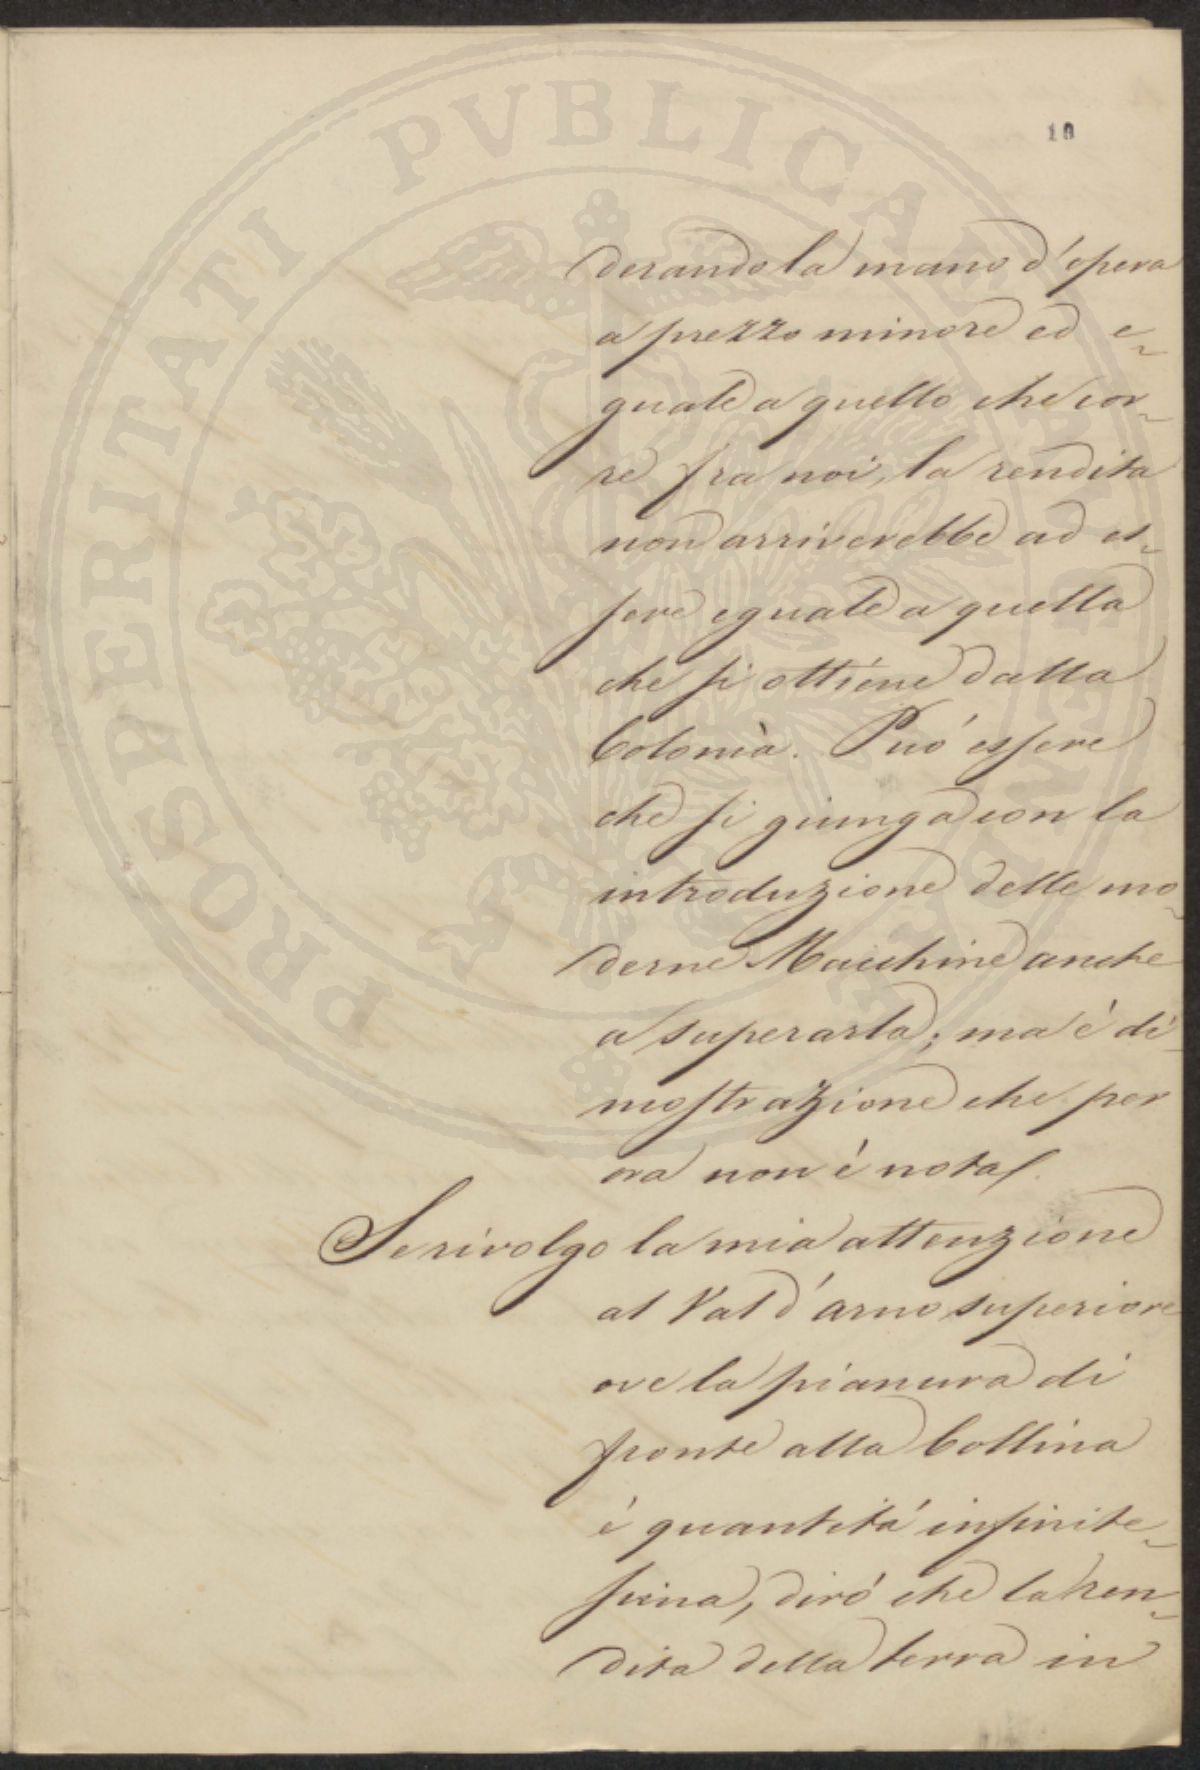 10
derando la mano d'opera
a prezzo minore ed e-
guale a quello che cor-
re fra noi, la rendita
non arriverebbe ad es-
sere eguale a quella
che si ottiene dalla
Colonìa. Può essere
che si giunga con la
introduzione delle mo-
derne Macchine anche
a superarla; ma è di-
mostrazione che per
ora non è nota.
Se rivolgo la mia attenzione
al Val d'arno superiore
ove la pianura di
fronte alla Collina
è quantità infinite-
sima, dirò che la ren-
dita della terra in
PROSPERITATI PVBLICAE AVGENDAE